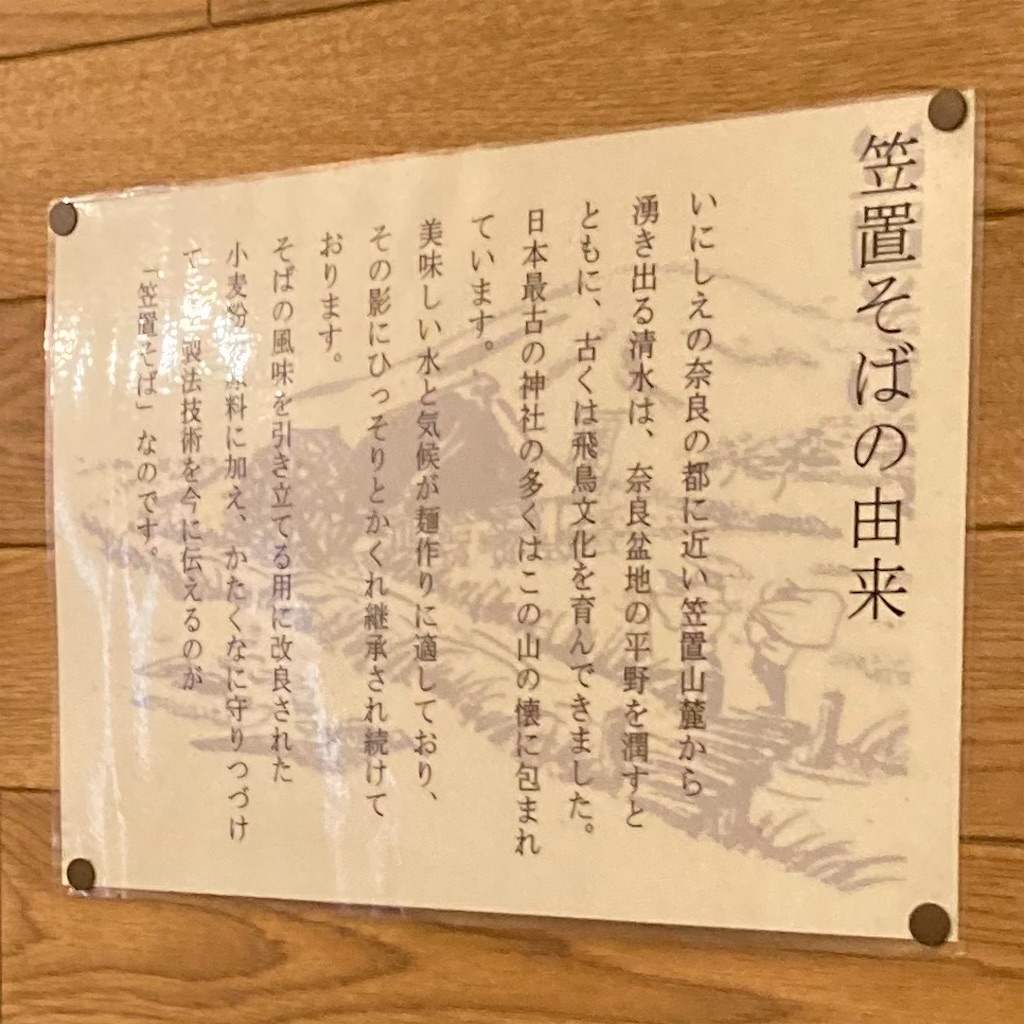 笠置そばの由来
いにしえの奈良の都に近い笠置山麓から
湧き出る清水は、奈良盆地の平野を潤すと
ともに、古くは飛鳥文化を育んできました。
日本最古の神社の多くはこの山の懐に包まれ
ています。
美味しい水と気候が麺作りに適しており、
その影にひっそりとかくれ継承され続けて
おります。
そばの風味を引き立てる用に改良された
小麦粉を原料に加え、かたくなに守りつづけ
て製法技術を今に伝えるのが
「笠置そば」なのです。